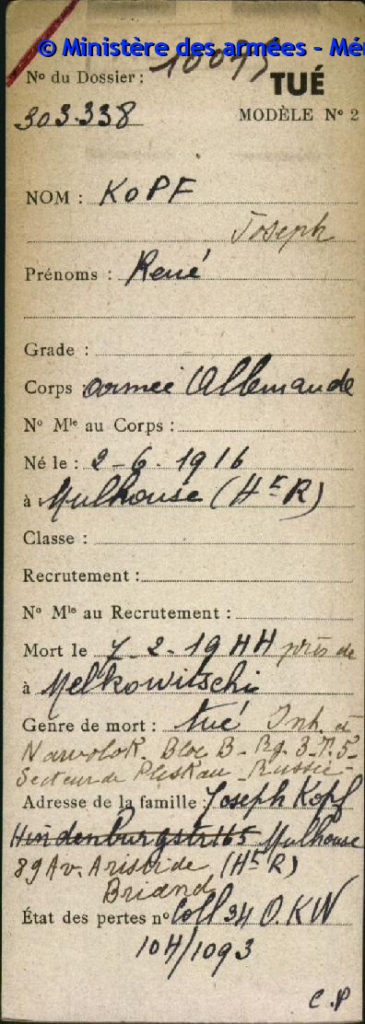 © Ministère des armées - Mé
N° du Dossier : 10095
TUÉ
303.338
MODÈLE N° 2
NOM : KOPF
Joseph
Prénoms : René
Grade :
Corps armée Allemande
N° Mle au Corps :
Né le : 2-6. 1916
à Mulhouse (Ht R)
Classe :
Recrutement :
N° Mle au Recrutement :
Mort le 7-2-1944 près de
à Melkowitschi
Genre de mort : tué Inh. à
Nawolok. Bloc B - Rg. 3. T. 5-
Secteur de Pleskau - Russie -
Adresse de la famille : Joseph Kopf
Hindenburgstr 165 Mulhouse
89 Av. Aristide (Ht R)
Briand
État des pertes n° Coll 34 O.KW
104/1093
C.P